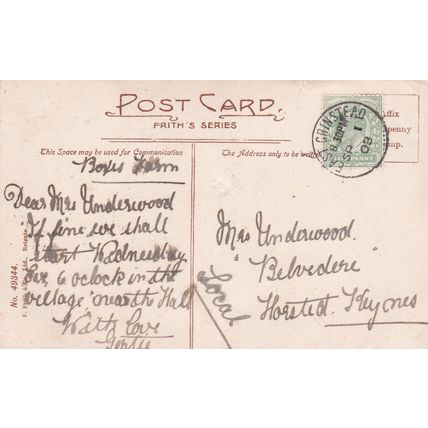 POST CARD.
FRITH'S SERIES
This Space may be used for Communication
The Address only to be written
Affix
Halfpenny
Stamp.
EAST GRINSTEAD
8.30PM
08
HALFPENNY
No. 49344.
F. Frith & Co., Ltd., Reigate.
Boxes Farm
Dear Mrs Underwood
If fine we shall
start Wednesday
6 oclock in the
village near the Hall
With Love
Mrs Underwood.
"Belvedere"
Horsted Keynes
Local